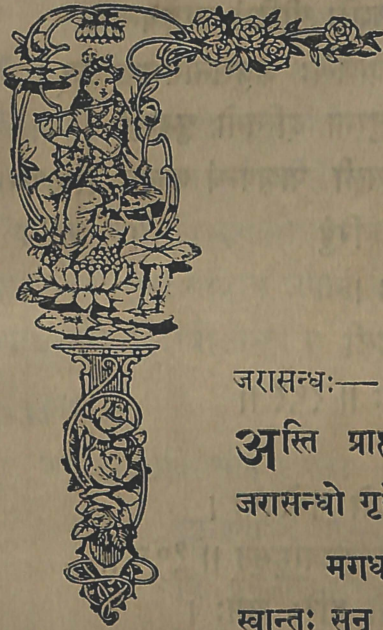 जरासन्धः—
अस्ति
जरासन्धो
मगध
स्वान्तः सन्